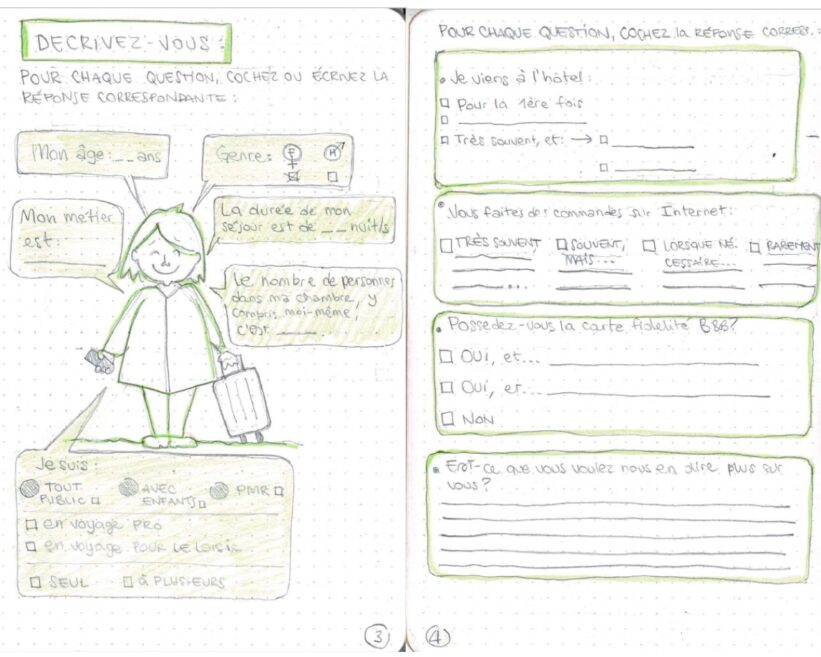 DECRIVEZ-VOUS :
POUR CHAQUE QUESTION, COCHEZ OU ÉCRIVEZ LA
RÉPONSE CORRESPONDANTE :
Mon âge : _ _ ans
Genre : F H
Mon métier
est :
La durée de mon
séjour est de _ _ nuit/s
Le nombre de personnes
dans ma chambre, y
compris moi-même,
c'est ____.
Je suis :
TOUT
PUBLIC
AVEC
ENFANTS
PMR
en voyage PRO
en voyage POUR LE LOISIR
SEUL
à PLUSIEURS
3
POUR CHAQUE QUESTION, COCHEZ la RÉPONSE CORRES. :
Je viens à l'hôtel :
Pour la 1ère fois
Très souvent, et : →
Vous faites des commandes sur Internet :
TRÈS SOUVENT
SOUVENT,
MAIS...
LORSQUE NÉ-
CESSAIRE...
RAREMENT
...
Possedez-vous la carte fidelité B&B?
OUI, et...
OUI, et...
NON
Est-ce que vous voulez nous en dire plus sur
vous?
4